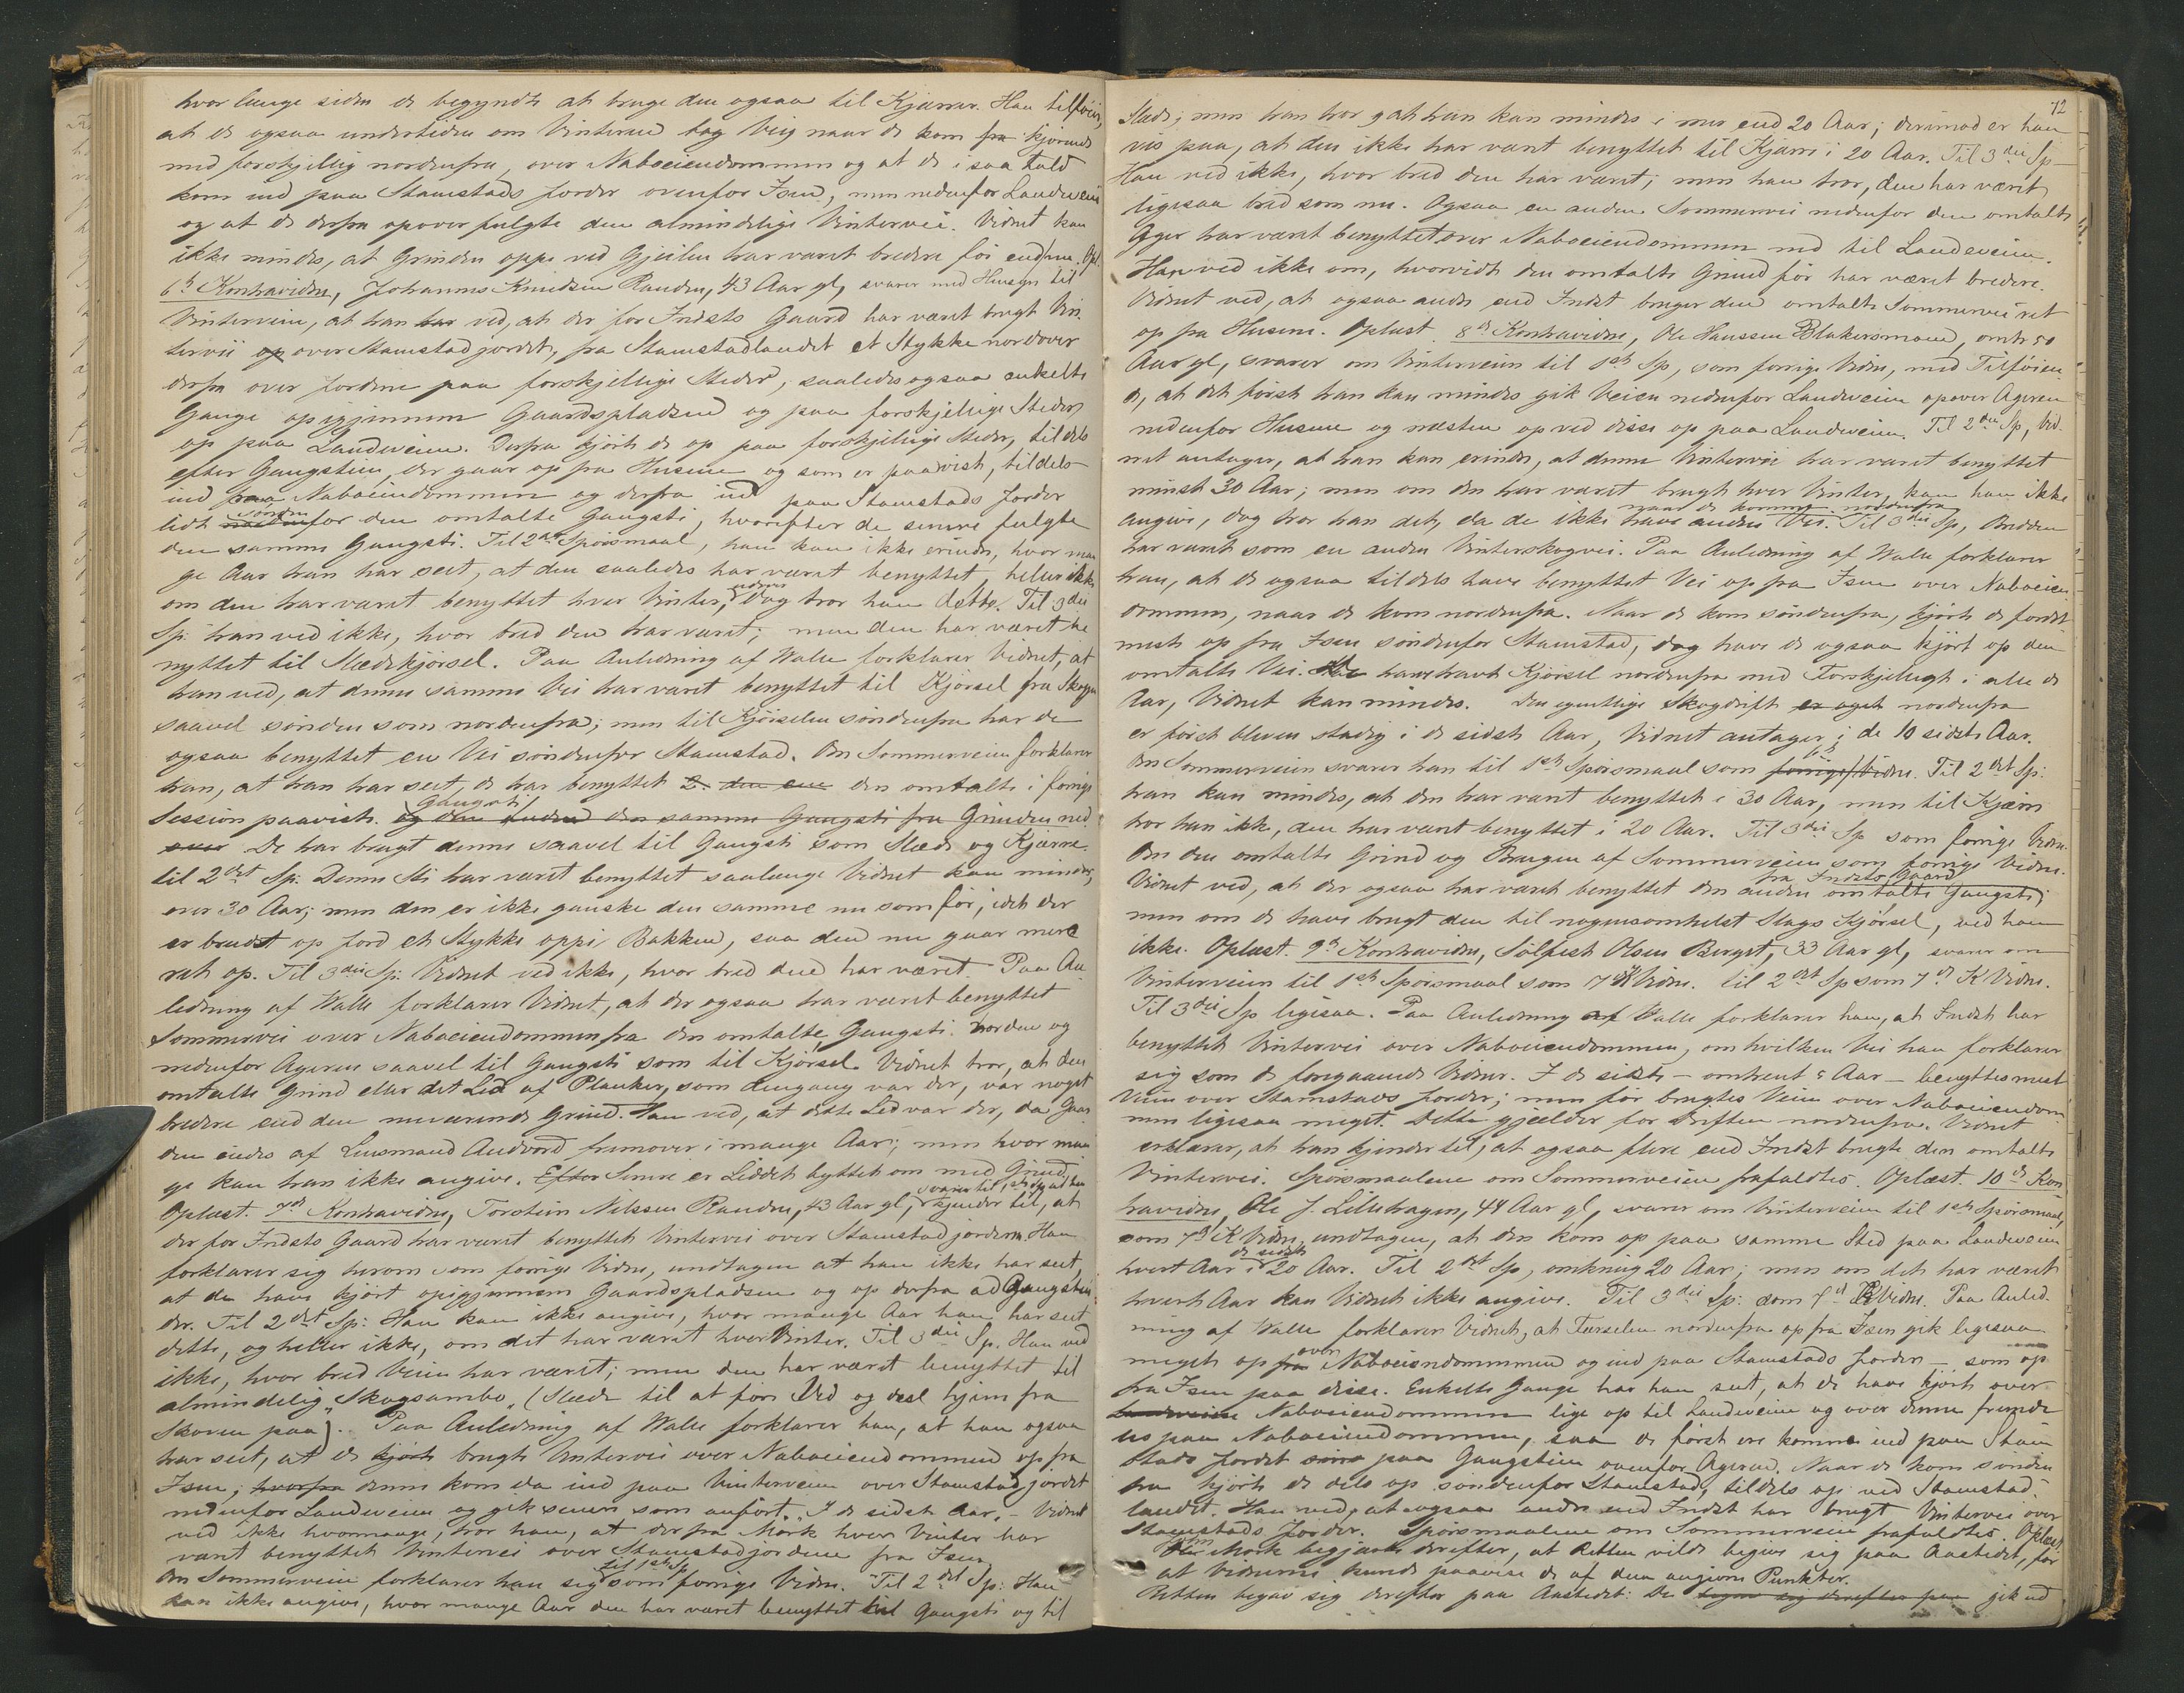 hvor længe siden de begyndte at bruge den ogsaa til Kjærrer. Han tilføier,
at de ogsaa undertiden om Vinteren tog Veig naar de kom fra kjørende
med forskjellig nordenfra, over Naboeiendommen og at de i saa Fald
kom ind paa Stamstads Jorder ovenfor Isen, men nedenfor Landeveien
og at de derfra opover fulgte den almindelige Vintervei. Vidnet kan
ikke mindes, at Grinden oppe ved Gjeilen har været bredere før end nu. Opl.
6te Kontravidne, Johannes Knudsen Randen, 43 Aar gl, svarer med Hensyn til
Vinterveien, at han har ved, at der for Indsets Gaard har været brugt Vin-
tervei op over Stamstadjordet, fra Stamstadlandet et Stykke nordover
derfra over Jorderne paa forskjellige Steder, saaledes ogsaa enkelte
Gange opigjennem Gaardspladsen og paa forskjellige Steder
op paa Landeveien. Derfra kjørte de op paa forskjellige Steder, tildels
efter Gangstien, der gaar op fra Husene og som er paavist, tildels
ind paa Naboeiendommen og derfra ind paa Stamstads Jorder
lidt nordenfor sønden den omtalte Gangsti, hvorefter de senere fulgte
den samme Gangsti. Til 2det Spørsmaal, han kan ikke erindre, hvor man-
ge Aar han har seet, at den saaledes har været benyttet, heller ikke
om den har været benyttet hver Vinter, dog tror han dette. Til 3die
Sp: han ved ikke, hvor bred den har været; men den har været be
nyttet til Slædekjørsel. Paa Anledning af Walle forklarer Vidnet, at
han ved, at denne samme Vei har været benyttet til Kjørsel fra Skogen
saavel sønden som nordenfra; men til Kjørselen søndenfra har de
ogsaa benyttet en Vei søndenfor Stamstad. Om Sommerveien forklarer
han, at han har seet, de har benyttet 2. den ene den omtalte i forrige
Session paaviste Gangsti og den anden den samme Gangsti fra Grinden ned
over De har brugt denne saavel til Gangsti som Slæde og Kjærre.
til 2det Sp: Denne Sti har været benyttet saalænge Vidnet kan mindes,
over 30 Aar; men den er ikke ganske den samme nu som før, idet der
er brudt op Jord et Stykke oppi Bakken, saa den nu gaar mere
ret op. Til 3die Sp: Vidnet ved ikke, hvor bred den har været. Paa An-
ledning af Walle forklarer Vidnet, at der ogsaa har været benyttet
Sommervei over Naboeiendommen fra den omtalte Gangsti norden og
nedenfor Ageren saavel til Gangsti som til Kjørsel. Vidnet tror, at den
omtalte Grind eller det Led af Planker, som dengang var der, var noget
bredere end den nuværende Grind. Han ved, at dette Led var der, da Gaar
den eiedes af Lensmand Audvord fremover i mange Aar; men hvor man
ge kan han ikke angive. Efter Senere er Leddet byttet om med Grind.
Oplæst. 7de Kontravidne, Torstein Nilssen Randen, 43 Aar gl, svarer til 1ste Sp at han kjender til, at
der for Indsets Gaard har været benyttet Vintervei over Stamstadjorderne. Han
forklarer sig herom som forrige Vidne, undtagen at han ikke har seet,
at de have kjørt opigjennem Gaardspladsen og op derfra ad Gangstien
der. Til 2det Sp: Han kan ikke angive, hvor mange Aar han har seet
dette, og heller ikke, om det har været hver Vinter. Til 3die Sp. Han ved
ikke, hvor bred Veien har været; men den har været benyttet til
almindelig „Skogsambo“ (Slæde til at føre Ved og desl hjem fra
Skoven paa). Paa Anledning af Walle forklarer han, at han ogsaa
har seet, at de kjørte brugte Vintervei over Naboeiendommen op fra
Isen; hvorfra denne kom da ind paa Vinterveien over Stamstadjordet
nedenfor Landeveien og gik senere som anført. I de sidste Aar, – Vidnet
ved ikke hvormange, tror han, at der fra Mørk hver Vinter har
været benyttet Vintervei over Stamstadjordene fra Isen
Om Sommerveien forklarer han sig til 1ste Sp som forrige Vidne. Til 2det Sp: Han
kan ikke angive, hvor mange Aar den har været benyttet til Gangsti og til
72
Slæde; men han tror at han kan mindes i mer end 20 Aar; derimod er han
vis paa, at den ikke har været benyttet til Kjærre i 20 Aar. Til 3die Sp
Han ved ikke, hvor bred den har været; men han tror, den har været
ligesaa bred som nu. Ogsaa en anden Sommervei nedenfor den omtalte
Ager har været benyttet over Naboeiendommen ned til Landeveien.
Han ved ikke om, hvorvidt den omtalte Grind før har været bredere.
Vidnet ved, at ogsaa andre end Indset bruger den omtalte Sommervei ret
op fra Husene. Oplæst. 8de Kontravidne, Ole Hanssen Blakersmoend, omtr 50
Aar gl, svarer om Vinterveien til 1ste Sp, som forrige Vidne, med Tilføien-
de, at det første han kan mindes gik Veien nedenfor Landeveien opover Ageren
nedenfor Husene og næsten op ved disse op paa Landeveien. Til 2det Sp, Vid-
net antager, at han kan erindre, at denne Vintervei har været benyttet
mindst 30 Aar; men om den har været brugt hver Vinter, kan han ikke
angive, dog tror han det, da de ikke have anden Vei naar de kommer nordenfra. Til 3die Sp, Bredden
har været som en anden Vinterskogvei. Paa Anledning af Walle forklarer
han, at de ogsaa tildels have benyttet Vei op fra Isen over Naboeien
dommen, naar de kom nordenfra. Naar de kom søndenfra, kjørte de fordet
meste op fra Isen søndenfor Stamstad, dog have de ogsaa kjørt op den
omtalte Vei. De have havt Kjørsel nordenfra med Forskjelligt i alle de
Aar, Vidnet kan mindes. Den egentlige Skogdrift er ogsaa nordenfra
er først bleven stadig i de sidste Aar, Vidnet antager i de 10 sidste Aar.
Om Sommerveien svarer han til 1ste Spørsmaal som forrige Vidne. Til 2det Sp:
han kan mindes, at den har været benyttet i 30 Aar, men til Kjærre
tror han ikke, den har været benyttet i 20 Aar. Til 3die Sp som forrige Vidne.
Om den omtalte Grind og Brugen af Sommerveien som forrige Vidne.
Vidnet ved, at der ogsaa har været benyttet den anden fra Indsets Gaard omtalte Gangsti;
men om de have brugt den til nogensomhelst Slags Kjørsel, ved han
ikke. Oplæst. 9de Kontravidne, Sølfest Olsen Berget, 33 Aar gl, svarer om
Vinterveien til 1ste Spørsmaal som 7de K Vidne. Til 2det Sp som 7de K Vidne.
Til 3die Sp ligesaa. Paa Anledning af Walle forklarer han, at Indset har
benyttet Vintervei over Naboeiendommen, om hvilken Vei han forklarer
sig som de foregaaende Vidner. I de sidste – omtrent 5 Aar – benyttes mest
Veien over Stamstads Jorder; men før brugtes Veien over Naboeiendom
men ligesaa meget. Dette gjælder for Driften nordenfra. Vidnet
erklærer, at han kjender til, at ogsaa flere end Indset brugte den omtalte
Vintervei. Spørsmaalene om Sommerveien frafaldtes. Oplæst. 10de Kon
travidne, Ole J. Lillehagen, 44 Aar gl, svarer om Vinterveien til 1ste Spørsmaal,
som 7de K Vidne, undtagen, at den kom op paa samme Sted paa Landeveien
hvert Aar i de sidste 20 Aar. Til 2det Sp, omkring 20 Aar; men om det har været
hvert Aar kan Vidnet ikke angive. Til 3die Sp: som 7de K Vidne. Paa Anled-
ning af Walle forklarer Vidnet, at Færselen nordenfra op fra Isen gik ligesaa
meget op fra over Naboeiendommen og ind paa Stamstads Jorder – som op
fra Isen paa disse. Enkelte Gange har han seet, at de have kjørt over
Landeveien Naboeiendommen lige op til Landeveien og over denne fremde
les paa Naboeiendommen, saa de først ere komne ind paa Stam
stads Jordet paa Gangstien ovenfor Ageren. Naar de kom sønden
fra kjørte de dels op søndenfor Stamstad, tildels op ved Stamstad-
landet. Han ved, at ogsaa andre end Indset har brugt Vintervei over
Stamstads Jorder. Spørsmaalene om Sommerveien frafaldtes. Oplæst
Mørk begjærte derefter, at Retten vilde begive sig paa Aastedet, for
at Vidnerne kunde paavise de af dem angivne Punkter.
Retten begav sig derefter paa Aastedet. De begav sig derefter paa gik ud